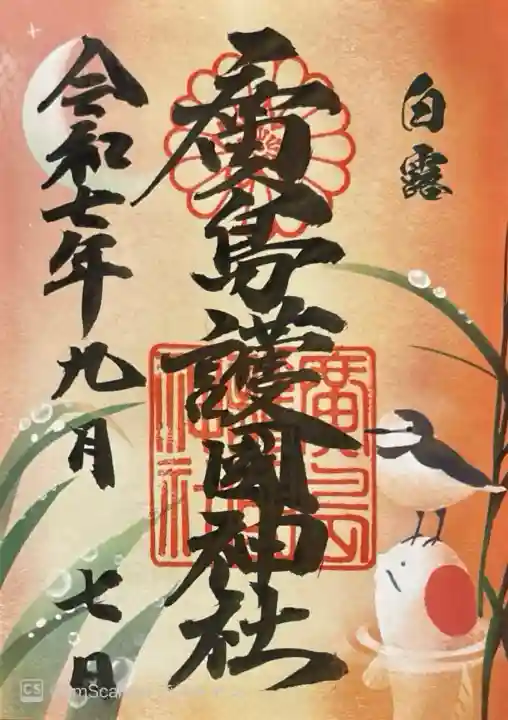 白露
廣島護國神社
令和七年九月 七日
廣島
護國
神社
CS CamScanner